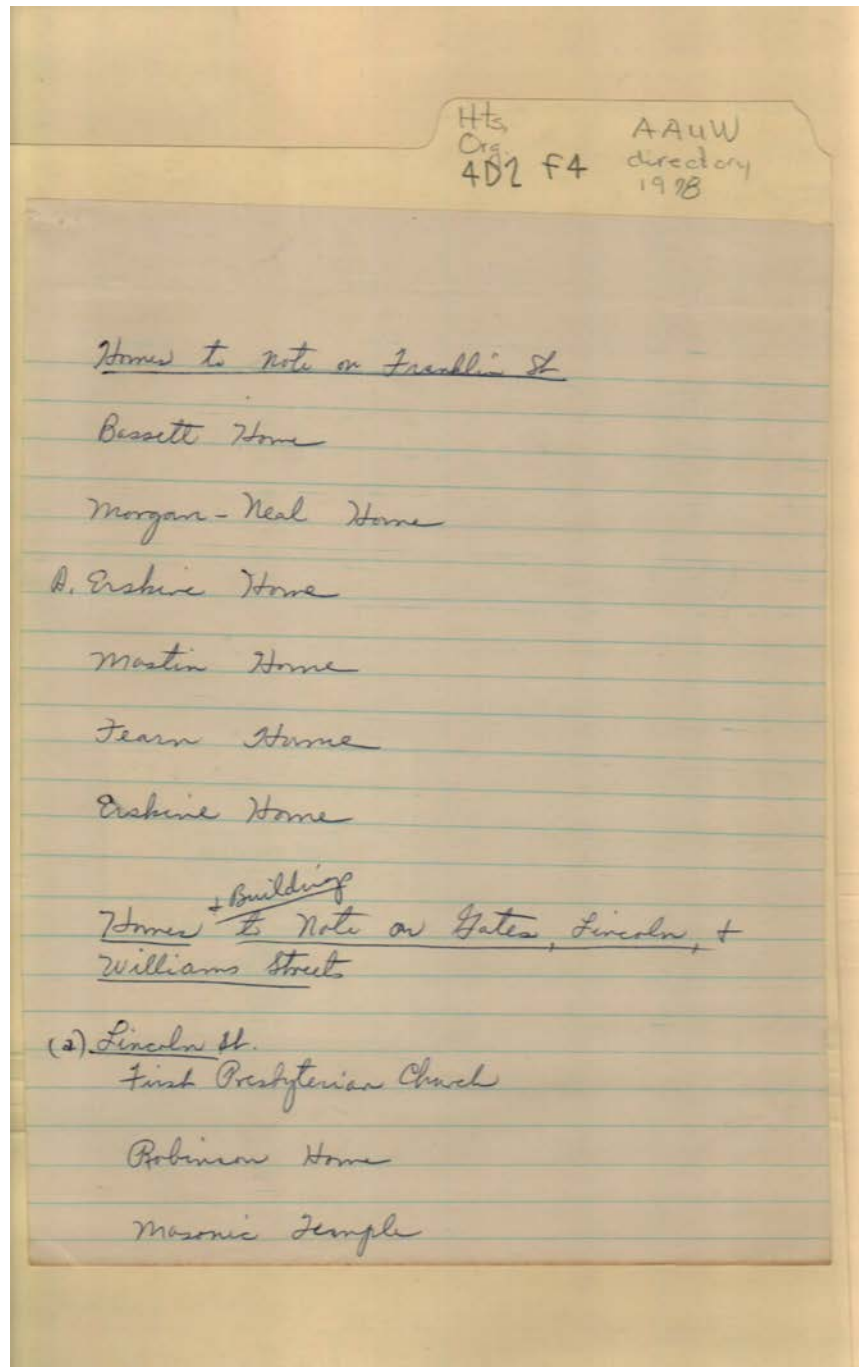 Hts,
Org.
4D2 f4
AAUW
directory
1978
Homes to note on Franklin St
Bassett Home
Morgan-Neal Home
A. Erskine Home
Mastin Home
Fearn Home
Erskine Home
+ Buildings
Homes to Note on Gates, Lincoln, +
Williams Streets
(a) Lincoln St.
First Presbyterian Church
Robinson Home
Masonic Temple